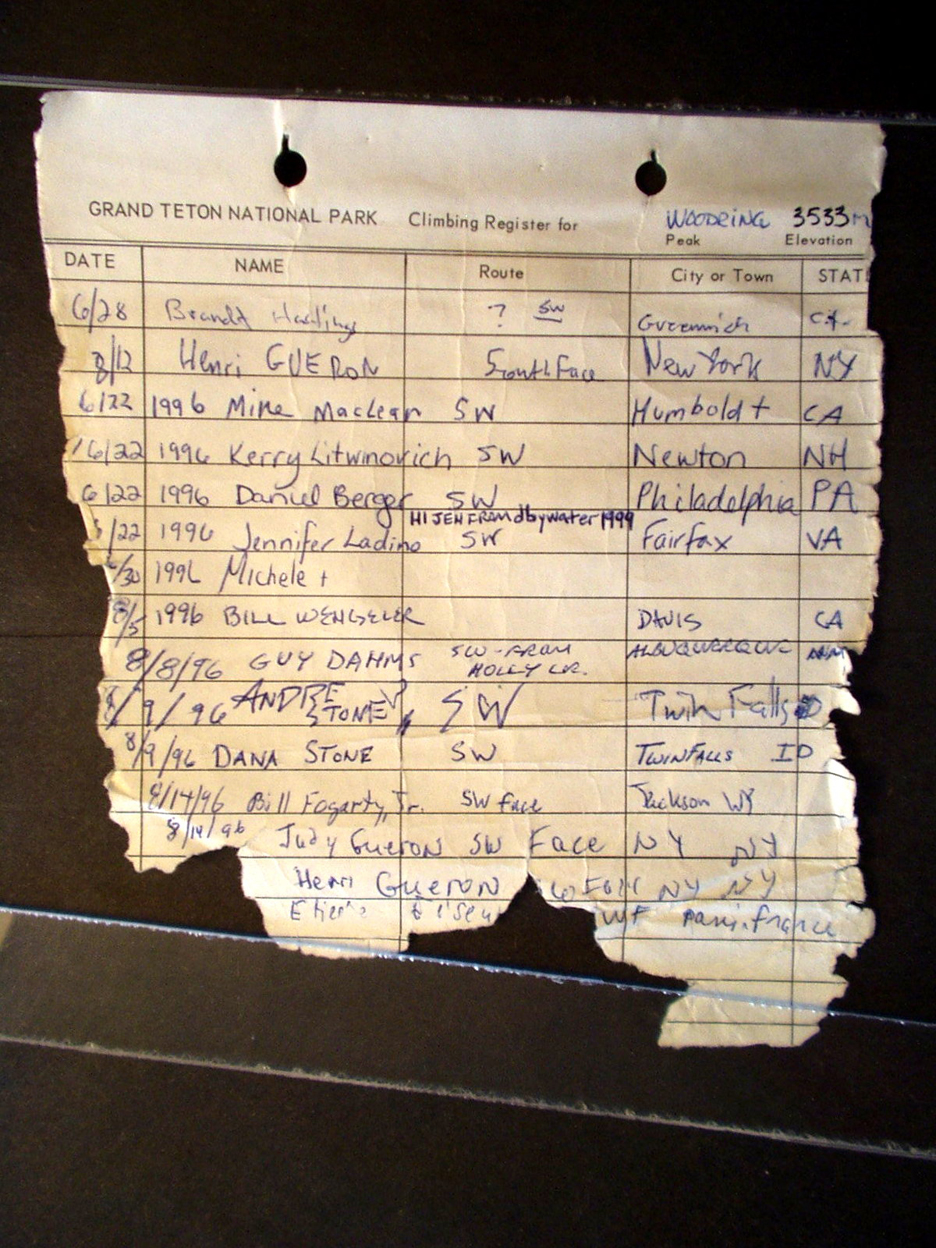 GRAND TETON NATIONAL PARK Climbing Register for WOODRING 3533m
Peak Elevation
DATE NAME Route City or Town STATE
6/28 Brandt ? SW Greenwich
8/12 Henri GUERON South Face New York NY
6/22 1996 Mike Maclean SW Humboldt CA
6/22 1996 Kerry Litwinovich SW Newton NH
6/22 1996 Daniel Berger SW Philadelphia PA
HI JEN FRAM dbywater 1999
/22 1996 Jennifer Ladino SW Fairfax VA
/30 1996 Michele +
8/5 1996 BILL WENGELER DAVIS CA
8/8/96 GUY DAHMS SW-FROM HOLLY LK. ALBUQUERQUE NM
/9/96 ANDRE STONE SW Twin Falls ID
8/9/96 DANA STONE SW TWIN FALLS ID
8/14/96 Bill Fogarty, Jr. SW face Jackson WY
8/14/96 Judy Gueron SW Face NY NY
Henri Gueron SW NY NY
Paris. France